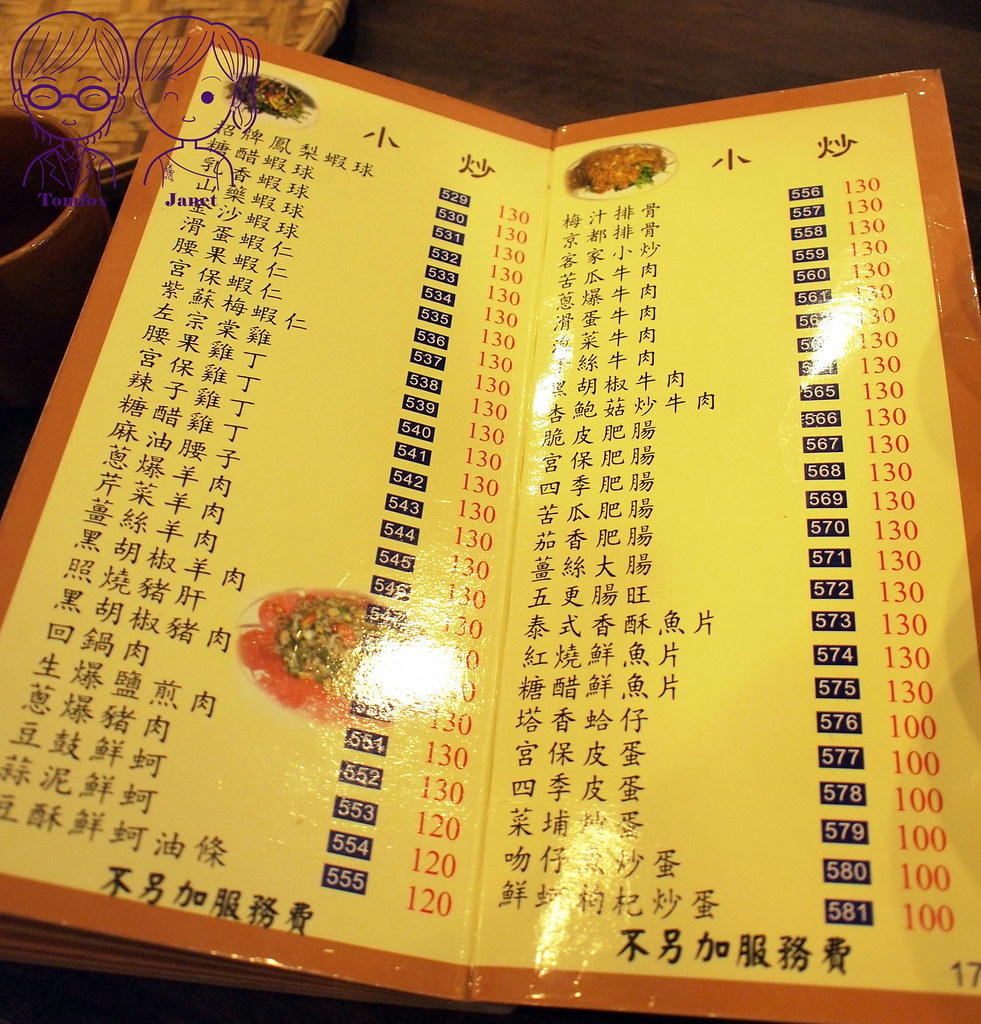 Tomfox Janet
小炒
招牌鳳梨蝦球 529 130
糖醋蝦球 530 130
乳香蝦球 531 130
山藥蝦球 532 130
金沙蝦仁 533 130
滑蛋蝦仁 534 130
腰果蝦仁 535 130
宮保蝦仁 536 130
紫蘇梅蝦仁 537 130
左宗棠雞 538 130
腰果雞丁 539 130
宮保雞丁 540 130
辣子雞丁 541 130
糖醋腰子 542 130
麻油羊肉 543 130
蔥爆羊肉 544 130
芹菜羊肉 545 130
薑絲羊肉 546
黑胡椒羊肉 547
照燒豬肝
黑胡椒豬肉
回鍋肉 130
生爆鹽煎肉 551 130
蔥爆豬肉 552 130
豆鼓鮮蚵 553 120
蒜泥鮮蚵 554 120
豆酥鮮蚵油條 555 120
不另加服務費
小炒
梅汁排骨 556 130
京都排骨 557 130
客家小炒 558 130
苦瓜牛肉 559 130
蔥爆牛肉 560 130
滑蛋牛肉 561 130
菜牛肉 130
絲牛肉 130
黑胡椒牛肉 130
杏鮑菇炒牛肉 565 130
脆皮肥腸 566 130
宮保肥腸 567 130
四季肥腸 568 130
苦瓜肥腸 569 130
茄香肥腸 570 130
薑絲大腸 571 130
五更腸旺 572 130
泰式香酥魚片 573 130
紅燒鮮魚片 574 130
糖醋鮮魚片 575 130
塔香蛤仔 576 100
宮保皮蛋 577 100
四季皮蛋 578 100
菜埔炒蛋 579 100
吻仔魚炒蛋 580 100
鮮蚵枸杞炒蛋 581 100
不另加服務費
17